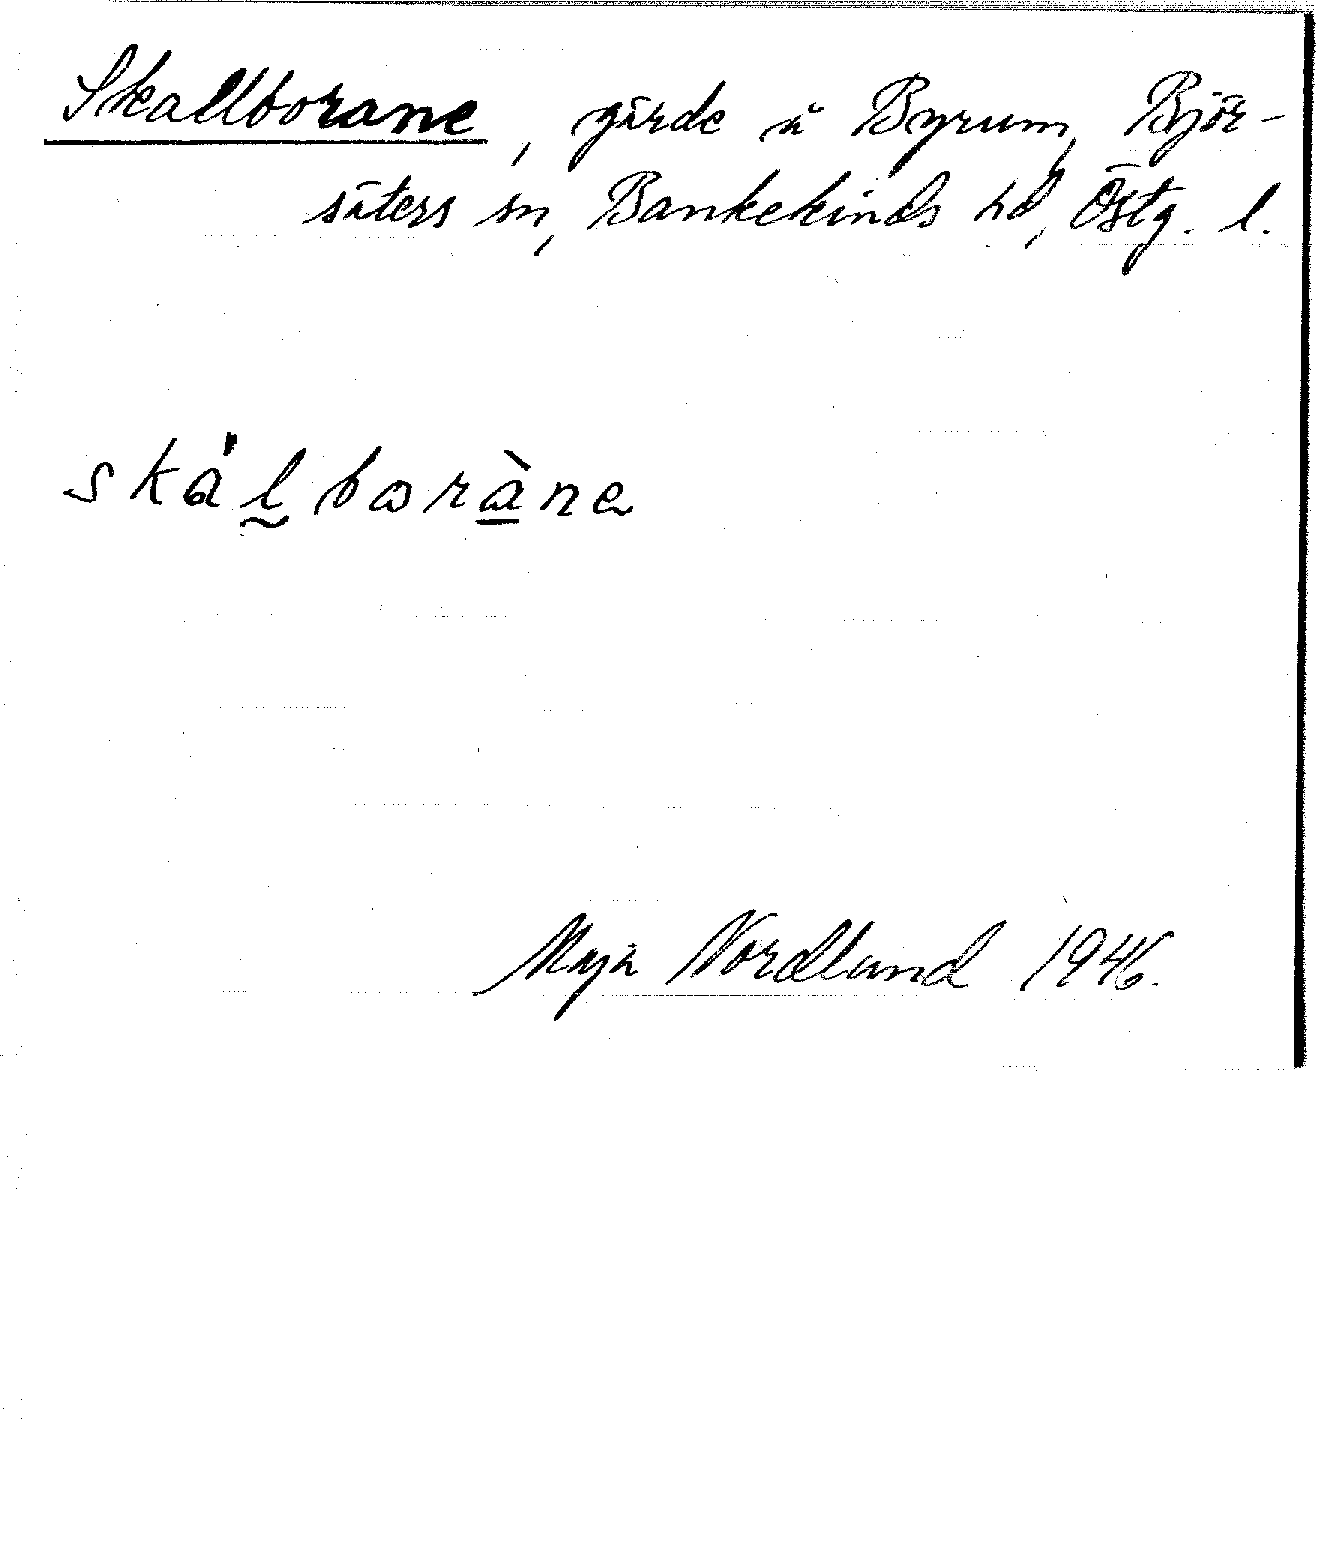 Skallborane, gärde å Byrum, Björ-
säters sn, Bankekinds hd, Östg. l.
skál̰borà̱ne
Maja Nordlund 1946.